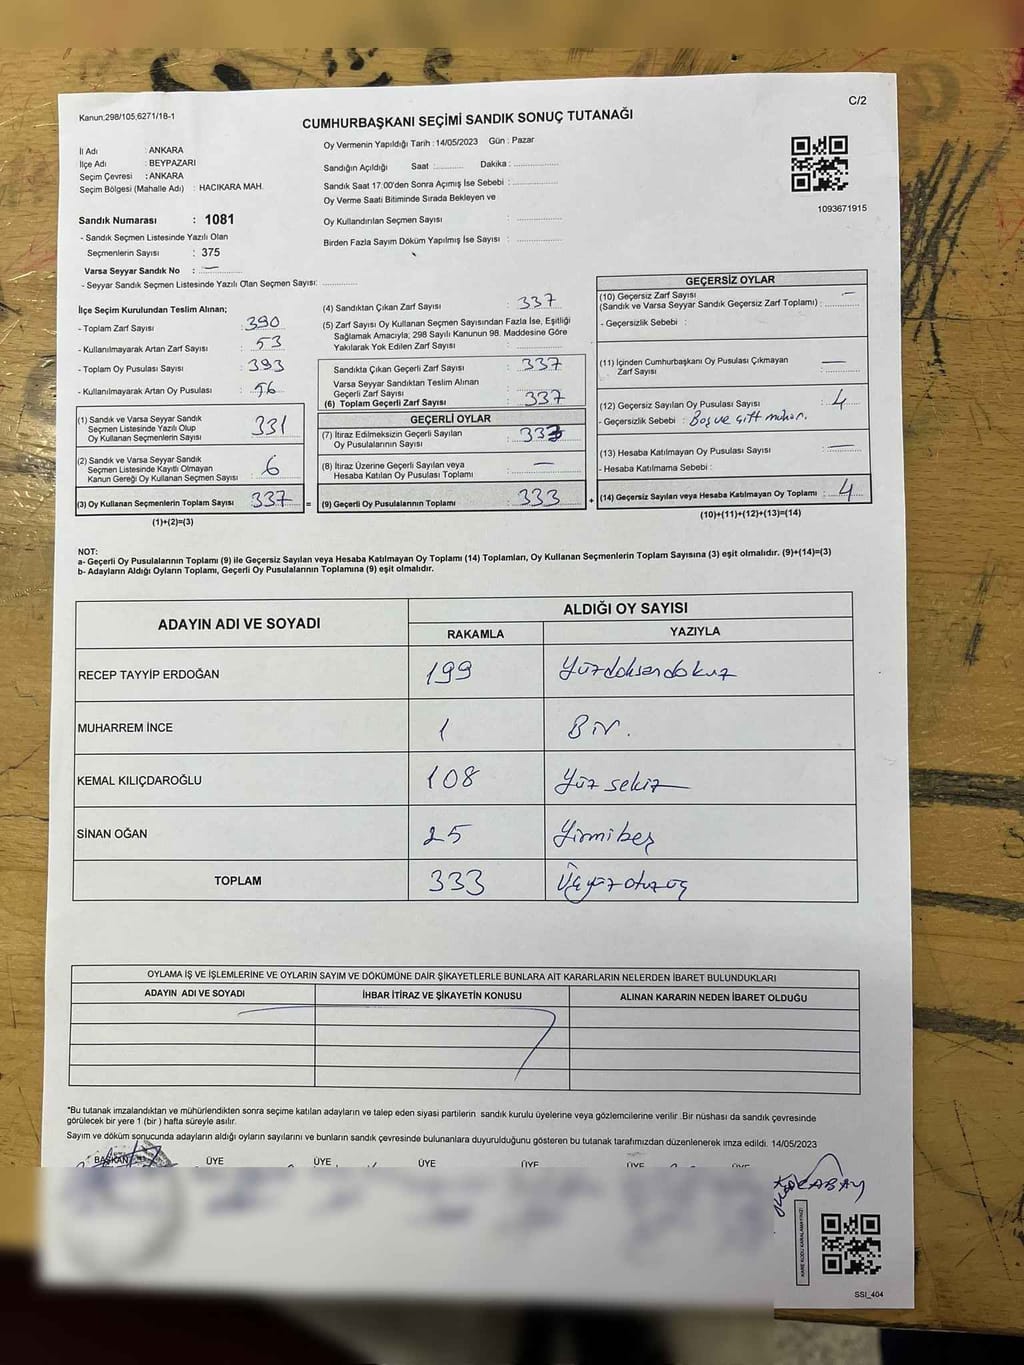 Kanun,298/105,6271/18-1
C/2
CUMHURBAŞKANI SEÇİMİ SANDIK SONUÇ TUTANAĞI
İl Adı : ANKARA
İlçe Adı : BEYPAZARI
Seçim Çevresi : ANKARA
Seçim Bölgesi (Mahalle Adı) : HACIKARA MAH.
Sandık Numarası : 1081
- Sandık Seçmen Listesinde Yazılı Olan
Seçmenlerin Sayısı : 375
Varsa Seyyar Sandık No : —
- Seyyar Sandık Seçmen Listesinde Yazılı Olan Seçmen Sayısı:
Oy Vermenin Yapıldığı Tarih : 14/05/2023 Gün : Pazar
Sandığın Açıldığı Saat : Dakika :
Sandık Saat 17:00'den Sonra Açımış İse Sebebi :
Oy Verme Saati Bitiminde Sırada Bekleyen ve
Oy Kullandırılan Seçmen Sayısı :
Birden Fazla Sayım Döküm Yapılmış İse Sayısı :
1093671915
İlçe Seçim Kurulundan Teslim Alınan;
- Toplam Zarf Sayısı : 390
- Kullanılmayarak Artan Zarf Sayısı : 53
- Toplam Oy Pusulası Sayısı : 393
- Kullanılmayarak Artan Oy Pusulası : 56
(1) Sandık ve Varsa Seyyar Sandık
Seçmen Listesinde Yazılı Olup
Oy Kullanan Seçmenlerin Sayısı 331
(2) Sandık ve Varsa Seyyar Sandık
Seçmen Listesinde Kayıtlı Olmayan
Kanun Gereği Oy Kullanan Seçmen Sayısı 6
(3) Oy Kullanan Seçmenlerin Toplam Sayısı 337 =
(1)+(2)=(3)
(4) Sandıktan Çıkan Zarf Sayısı : 337
(5) Zarf Sayısı Oy Kullanan Seçmen Sayısından Fazla İse, Eşitliği
Sağlamak Amacıyla; 298 Sayılı Kanunun 98. Maddesine Göre
Yakılarak Yok Edilen Zarf Sayısı :
Sandıkta Çıkan Geçerli Zarf Sayısı : 337
Varsa Seyyar Sandıktan Teslim Alınan
Geçerli Zarf Sayısı :
(6) Toplam Geçerli Zarf Sayısı : 337
GEÇERLİ OYLAR
(7) İtiraz Edilmeksizin Geçerli Sayılan
Oy Pusulalarının Sayısı : 333
(8) İtiraz Üzerine Geçerli Sayılan veya
Hesaba Katılan Oy Pusulası Toplamı : —
(9) Geçerli Oy Pusulalarının Toplamı : 333 +
GEÇERSİZ OYLAR
(10) Geçersiz Zarf Sayısı —
(Sandık ve Varsa Seyyar Sandık Geçersiz Zarf Toplamı) :
- Geçersizlik Sebebi :
(11) İçinden Cumhurbaşkanı Oy Pusulası Çıkmayan
Zarf Sayısı : —
(12) Geçersiz Sayılan Oy Pusulası Sayısı : 4
- Geçersizlik Sebebi : Boş ve çift mühür.
(13) Hesaba Katılmayan Oy Pusulası Sayısı : —
- Hesaba Katılmama Sebebi :
(14) Geçersiz Sayılan veya Hesaba Katılmayan Oy Toplamı : 4
(10)+(11)+(12)+(13)=(14)
NOT:
a- Geçerli Oy Pusulalarının Toplamı (9) ile Geçersiz Sayılan veya Hesaba Katılmayan Oy Toplamı (14) Toplamları, Oy Kullanan Seçmenlerin Toplam Sayısına (3) eşit olmalıdır. (9)+(14)=(3)
b- Adayların Aldığı Oyların Toplamı, Geçerli Oy Pusulalarının Toplamına (9) eşit olmalıdır.
ADAYIN ADI VE SOYADI ALDIĞI OY SAYISI
RAKAMLA YAZIYLA
RECEP TAYYİP ERDOĞAN 199 Yüzdoksandokuz
MUHARREM İNCE 1 Bir.
KEMAL KILIÇDAROĞLU 108 Yüz sekiz
SİNAN OĞAN 25 Yirmibeş
TOPLAM 333 Üçyüzotuzüç
OYLAMA İŞ VE İŞLEMLERİNE VE OYLARIN SAYIM VE DÖKÜMÜNE DAİR ŞİKAYETLERLE BUNLARA AİT KARARLARIN NELERDEN İBARET BULUNDUKLARI
ADAYIN ADI VE SOYADI İHBAR İTİRAZ VE ŞİKAYETİN KONUSU ALINAN KARARIN NEDEN İBARET OLDUĞU
*Bu tutanak imzalandıktan ve mühürlendikten sonra seçime katılan adayların ve talep eden siyasi partilerin sandık kurulu üyelerine veya gözlemcilerine verilir .Bir nüshası da sandık çevresinde
görülecek bir yere 1 (bir ) hafta süreyle asılır.
Sayım ve döküm sonucunda adayların aldığı oyların sayılarını ve bunların sandık çevresinde bulunanlara duyurulduğunu gösteren bu tutanak tarafımızdan düzenlenerek imza edildi. 14/05/2023
BAŞKAN ÜYE ÜYE ÜYE ÜYE ÜYE ÜYE
KARE KODU KARALAMAYINIZ!
SSI_404